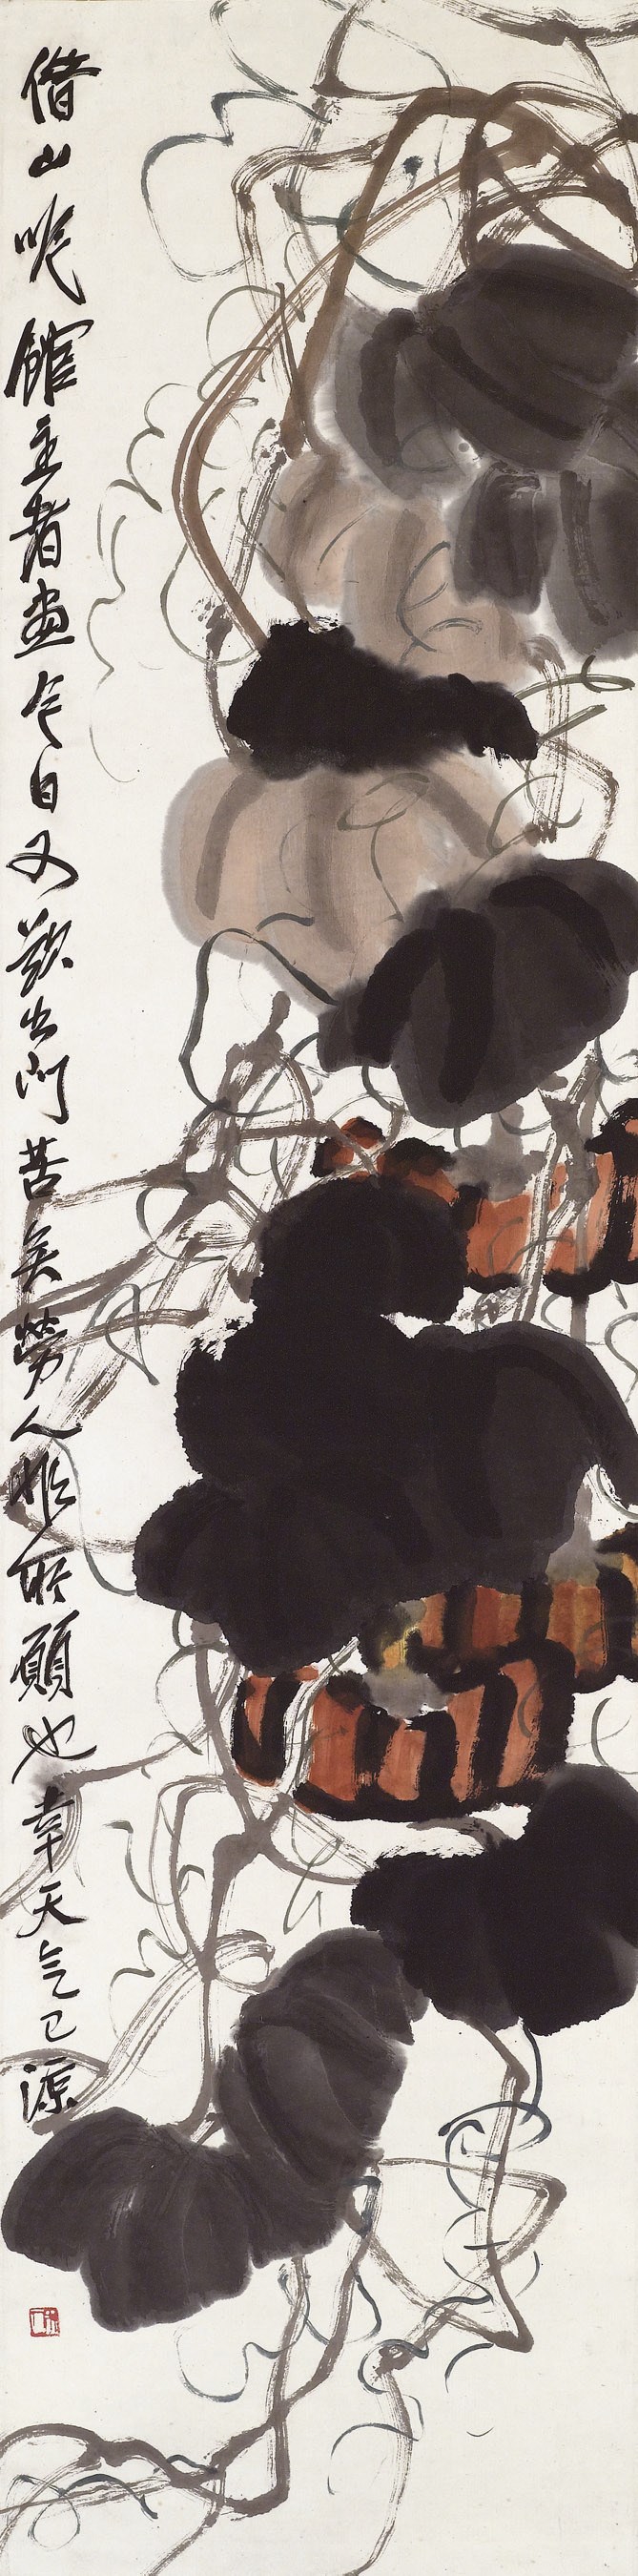 借山吟館主者畫今日又欲出門苦矣勞人非所願也幸天气已凉